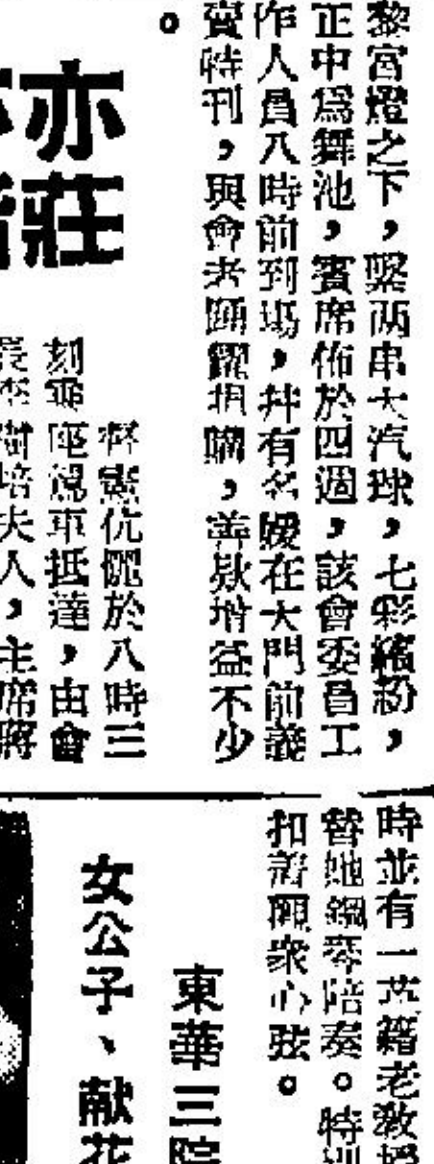 黎宮燈之下，繫兩串大汽球，七彩繽紛，
正中爲舞池，賓席佈於四週，該會委員工
作人員八時前到塲，幷有名媛在大門前義
賣特刊，與會者踴躍捐輸，善欵增益不少
。
亦莊
督憲伉儷於八時三
刻乘座駕車抵達，由會
長李樹培夫人，主席蔣
時並有一英籍老教授
替她鋼琴陪奏。特別
扣聽衆心弦。
東華三院
女公子、獻花